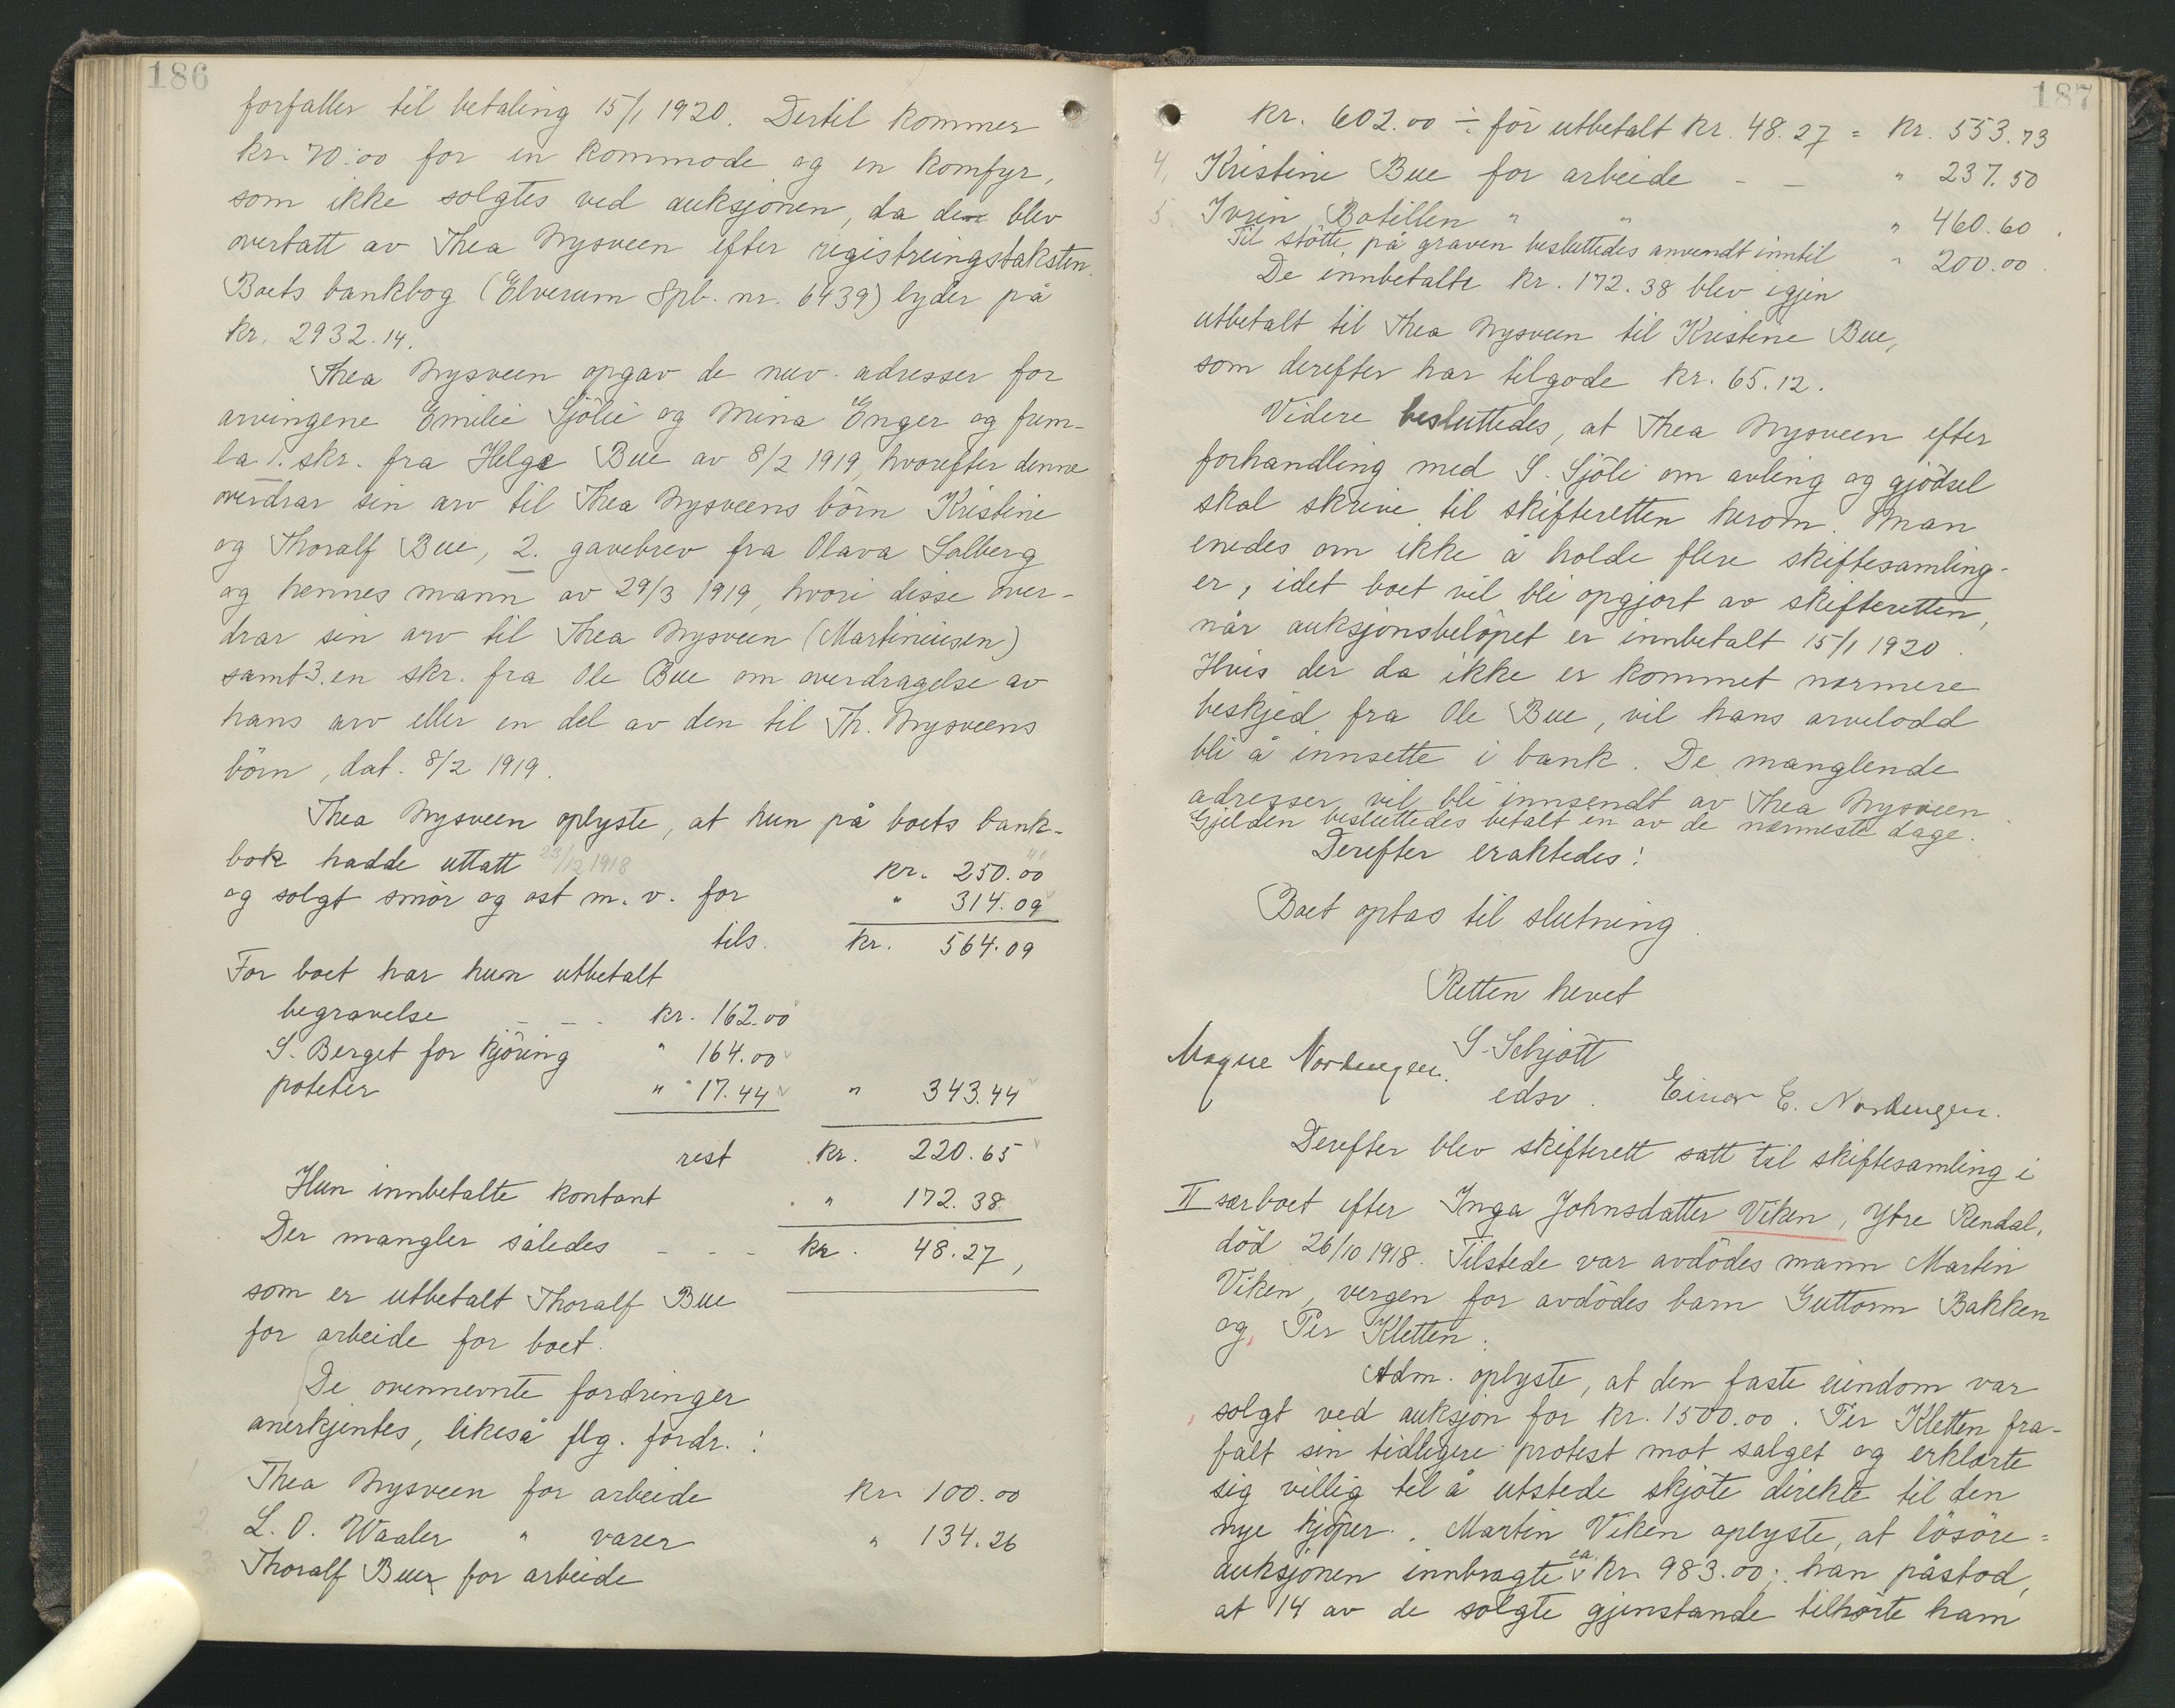 186
forfaller til betaling 15/1 1920. Dertil kommer
kr. 70.00 for en kommode og en komfyr,
som ikke solgtes ved auksjonen, da den blev
overtatt av Thea Nysveen efter registreringstaksten.
Boets bankbog (Elverum Spb. nr. 6439) lyder på
kr. 2932.14.
Thea Nysveen opgav de nuv. adresser for
arvingene Emilie Sjölie og Mina Enger og frem-
la 1. skr. fra Helge Bue av 8/2 1919, hvorefter denne
overdrar sin arv til Thea Nysveens börn Kristine
og Thoralf Bue, 2. gavebrev fra Olava Solberg
og hennes mann av 29/3 1919, hvori disse over-
drar sin arv til Thea Nysveen (Martiniusen)
samt 3. en skr. fra Ole Bue om overdragelse av
hans arv eller en del av den til Th. Nysveens
börn, dat. 8/2 1919.
Thea Nysveen oplyste, at hun på boets bank-
bok hadde uttatt 23/12 1918 kr. 250.00
og solgt smör og ost m. v. for " 314.09
tils. kr. 564.09
For boet har hun utbetalt
begravelse - - - kr. 162.00
S. Berget for kjöring " 164.00
poteter " 17.44 " 343.44
rest kr. 220.65
Hun innbetalte kontant " 172.38
Der mangler således - - - kr. 48.27,
som er utbetalt Thoralf Bue
for arbeide for boet.
De ovennevnte fordringer
anerkjentes, likeså flg. fordr.:
1 Thea Nysveen for arbeide kr. 100.00
2 L. O. Waaler " varer " 134.26
3 Thoralf Bue for arbeide
187
kr. 602.00 ÷ för utbetalt kr. 48.27 = kr. 553.73
4. Kristine Bue for arbeide - - " 237.50
5 Ivrin Botillen " " " 460.60.
Til stötte på graven besluttedes anvendt inntil " 200.00
De innbetalte kr. 172.38 blev igjen
utbetalt til Thea Nysveen til Kristine Bue,
som derefter har tilgode kr. 65.12.
Videre besluttedes, at Thea Nysveen efter
forhandling med S. Sjöli om avling og gjödsel
skal skrive til skifteretten herom. Man
enedes om ikke å holde flere skiftesamling-
er, idet boet vil bli opgjort av skifteretten,
når auksjonsbelöpet er innbetalt 15/1 1920.
Hvis der da ikke er kommet nærmere
beskjed fra Ole Bue, vil hans arvelodd
bli å innsette i bank. De manglende
adresser vil bli innsendt av Thea Nysveen.
Gjelden besluttedes betalt en av de nærmeste dage.
Derefter eraktedes:
Boet optas til slutning.
Retten hevet
S. Schjött
edsv.
Magne Nordengen. Einar E. Nordengen.
Derefter blev skifterett satt til skiftesamling i
II særboet efter Inga Johnsdatter Viken, Ytre Rendal,
död 26/10 1918. Tilstede var avdödes mann Martin
Viken, vergen for avdödes barn Guttorm Bakken
og Per Kletten.
Adm. oplyste, at den faste eiendom var
solgt ved auksjon for kr. 1500.00. Per Kletten fra-
falt sin tidligere protest mot salget og erklærte
sig villig til å utstede skjöte direkte til den
nye kjöper. Martin Viken oplyste, at lösöre=
auksjonen innbragte ca. kr. 983.00; han påstod,
at 14 av de solgte gjenstande tilhörte ham